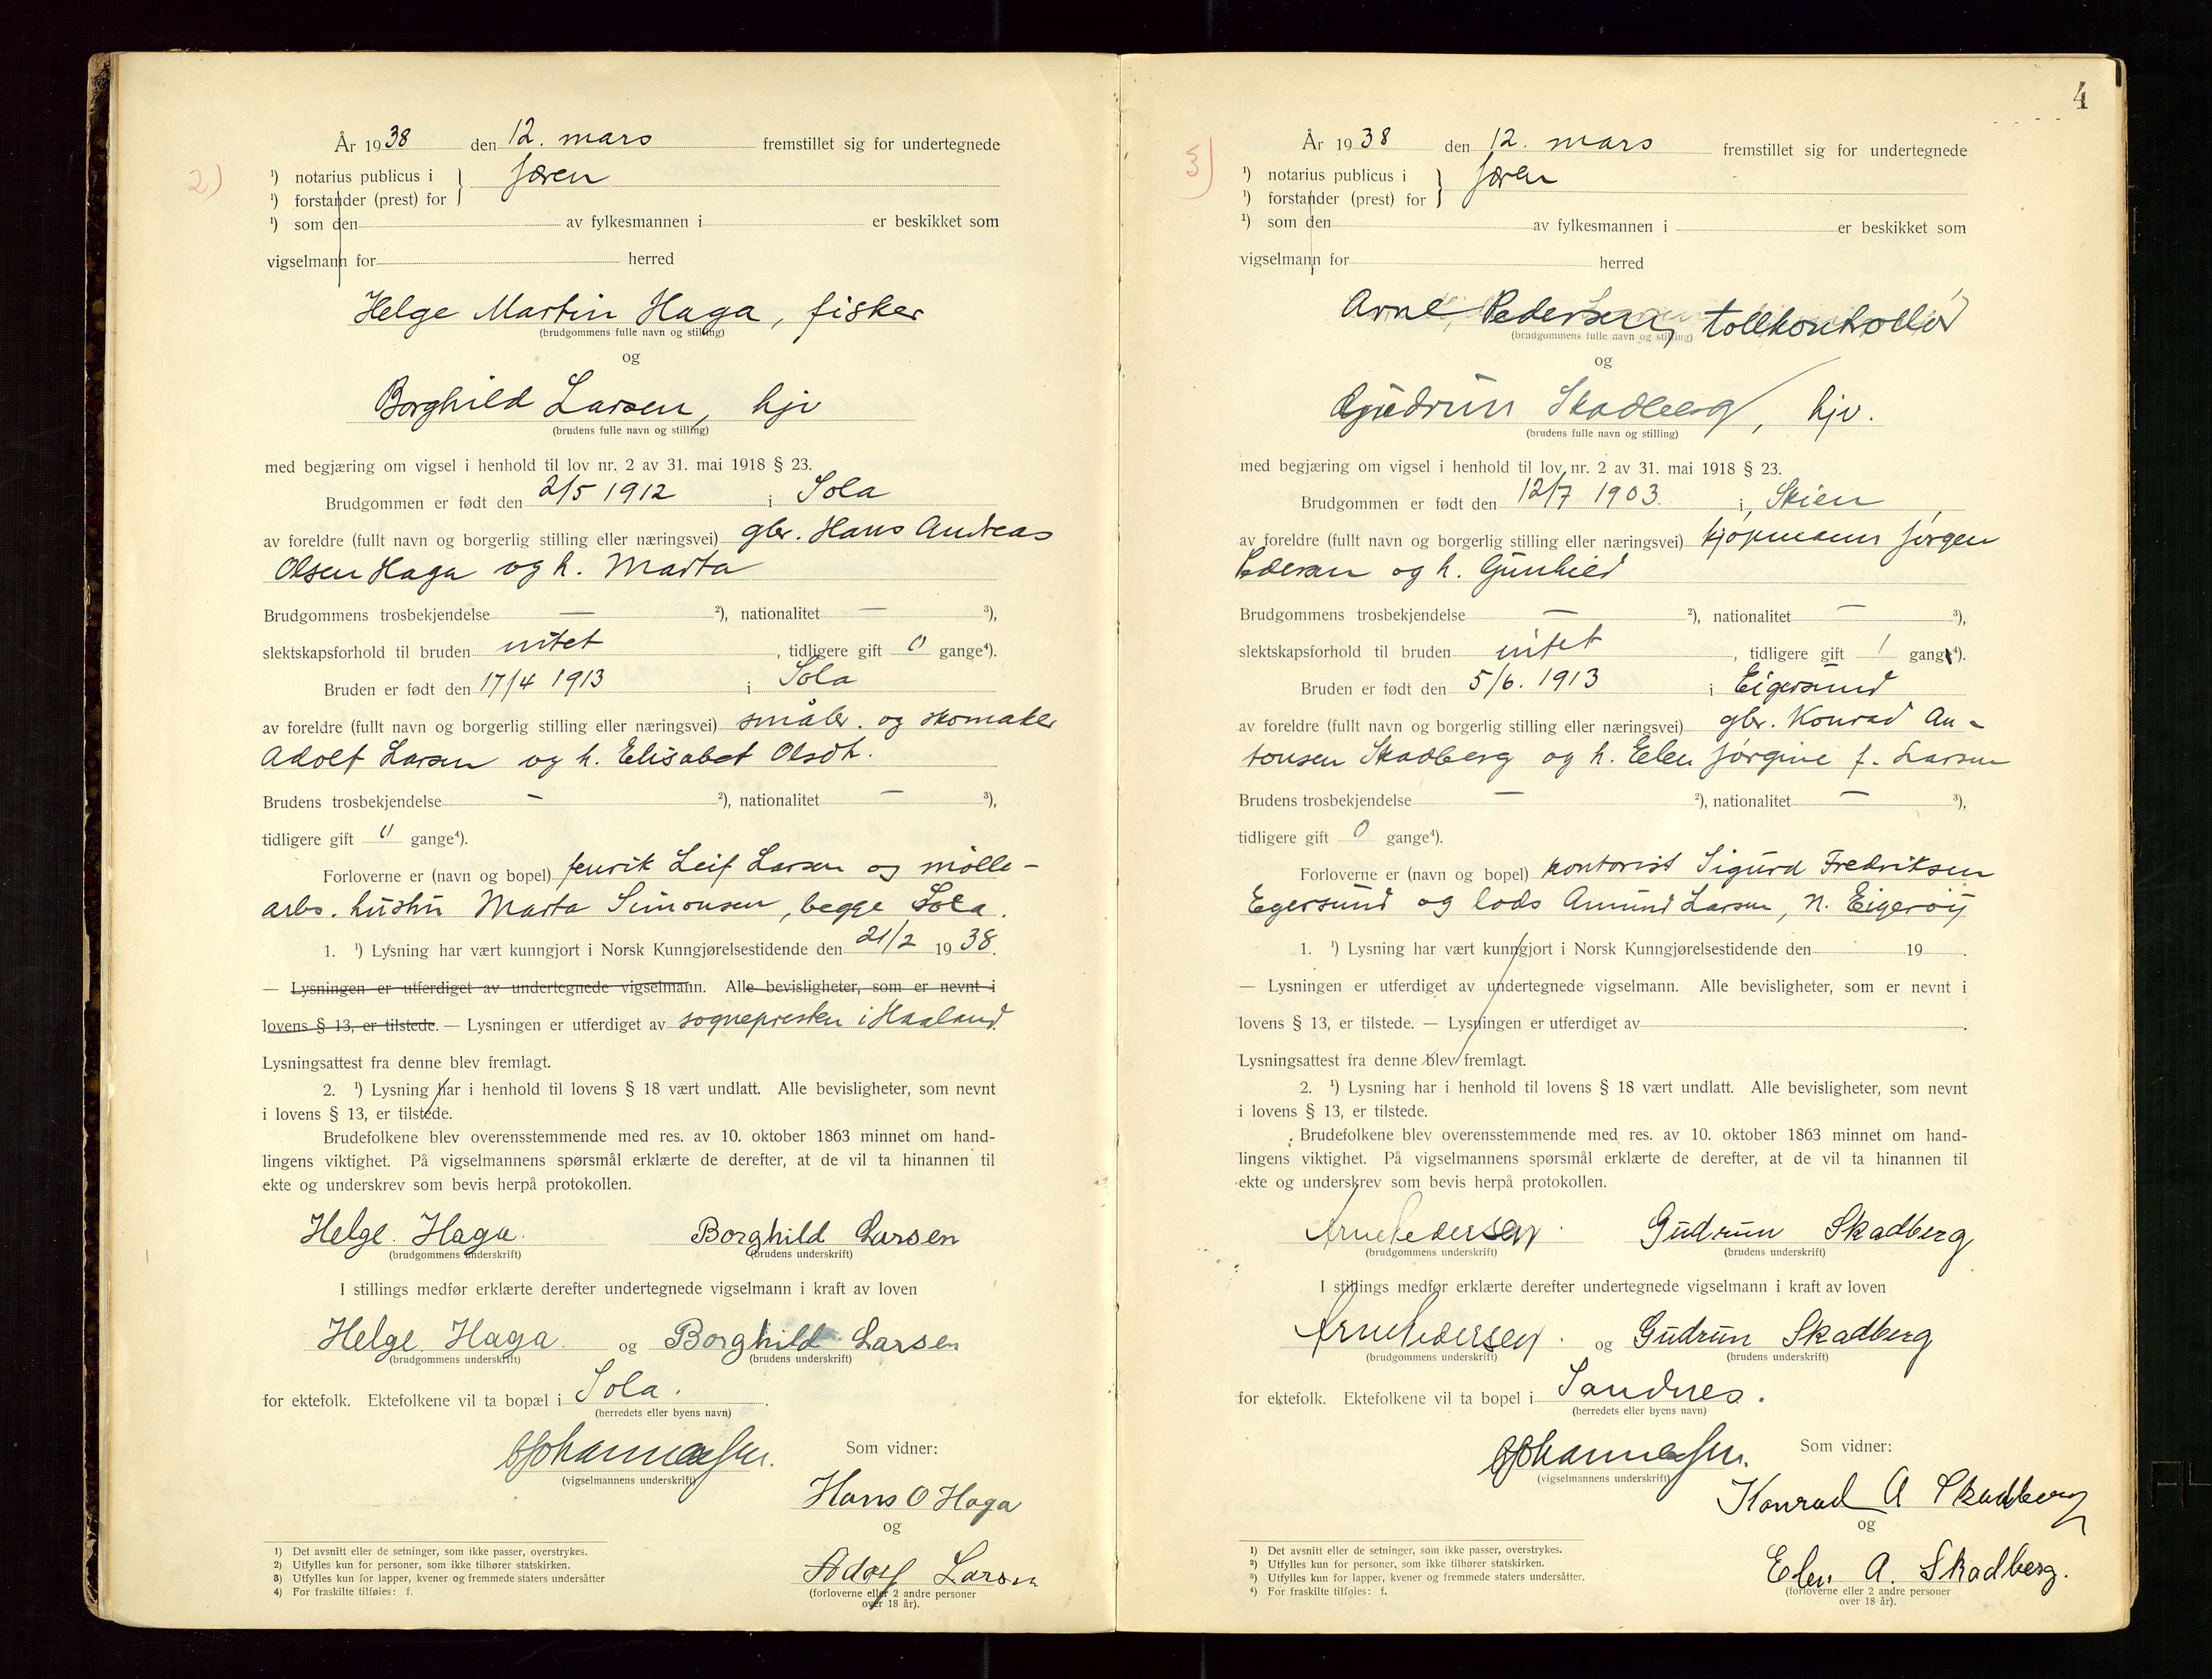 2)
År 1938 den 12. mars fremstillet sig for undertegnede
¹) notarius publicus i } Jæren
¹) forstander (prest) for
¹) som den av fylkesmannen i er beskikket som
vigselmann for herred
Helge Martin Haga, fisker
(brudgommens fulle navn og stilling)
og
Borghild Larsen, hjv
(brudens fulle navn og stilling)
med begjæring om vigsel i henhold til lov nr. 2 av 31. mai 1918 § 23.
Brudgommen er født den 2/5 1912 i Sola
av foreldre (fullt navn og borgerlig stilling eller næringsvei) gbr. Hans Andreas
Olsen Haga og h. Marta
Brudgommens trosbekjendelse — ²), nationalitet — ³),
slektskapsforhold til bruden intet, tidligere gift 0 gange⁴).
Bruden er født den 17/4 1913 i Sola
av foreldre (fullt navn og borgerlig stilling eller næringsvei) småbr. og skomaker
Adolf Larsen og h. Elisabet Olsdt.
Brudens trosbekjendelse — ²), nationalitet — ³),
tidligere gift 0 gange⁴).
Forloverne er (navn og bopel) Henrik Leif Larsen og mølle-
arbs. hustru Marta Simonsen, begge Sola.
1. ¹) Lysning har vært kunngjort i Norsk Kunngjørelsestidende den 21/2 1938.
— Lysningen er utferdiget av undertegnede vigselmann. Alle bevisligheter, som er nevnt i
lovens § 13, er tilstede. — Lysningen er utferdiget av sognepresten i Haaland.
Lysningsattest fra denne blev fremlagt.
2. ¹) Lysning har i henhold til lovens § 18 vært undlatt. Alle bevisligheter, som nevnt
i lovens § 13, er tilstede.
Brudefolkene blev overensstemmende med res. av 10. oktober 1863 minnet om hand-
lingens viktighet. På vigselmannens spørsmål erklærte de derefter, at de vil ta hinannen til
ekte og underskrev som bevis herpå protokollen.
Helge Haga. Borghild Larsen
(brudgommens underskrift) (brudens underskrift)
I stillings medfør erklærte derefter undertegnede vigselmann i kraft av loven
Helge Haga. og Borghild Larsen
(brudgommens underskrift) (brudens underskrift)
for ektefolk. Ektefolkene vil ta bopæl i Sola.
(herredets eller byens navn)
Som vidner:
(vigselmannens underskrift)
Hans O Haga
og
Adolf Larsen
(forloverne eller 2 andre personer
over 18 år).
¹) Det avsnitt eller de setninger, som ikke passer, overstrykes.
²) Utfylles kun for personer, som ikke tilhører statskirken.
³) Utfylles kun for lapper, kvener og fremmede staters undersåtter
⁴) For fraskilte tilføies: f.
4
3)
År 1938 den 12. mars fremstillet sig for undertegnede
¹) notarius publicus i } Jæren
¹) forstander (prest) for
¹) som den av fylkesmannen i er beskikket som
vigselmann for herred
Arne Pedersen, tollkontrollør
(brudgommens fulle navn og stilling)
og
Gudrun Skadberg, hjv.
(brudens fulle navn og stilling)
med begjæring om vigsel i henhold til lov nr. 2 av 31. mai 1918 § 23.
Brudgommen er født den 12/7 1903. i Skien
av foreldre (fullt navn og borgerlig stilling eller næringsvei) kjøpmann Jørgen
Pedersen og h. Gunhild
Brudgommens trosbekjendelse — ²), nationalitet — ³),
slektskapsforhold til bruden intet, tidligere gift 1 gang⁴).
Bruden er født den 5/6. 1913 i Eigersund
av foreldre (fullt navn og borgerlig stilling eller næringsvei) gbr. Konrad An-
tonsen Skadberg og h. Elen Jørgine f. Larsen
Brudens trosbekjendelse — ²), nationalitet — ³),
tidligere gift 0 gange⁴).
Forloverne er (navn og bopel) kontorist Sigurd Fredriksen
Egersund og lods Amund Larsen, N. Eigerøy
1. ¹) Lysning har vært kunngjort i Norsk Kunngjørelsestidende den 19 .
— Lysningen er utferdiget av undertegnede vigselmann. Alle bevisligheter, som er nevnt i
lovens § 13, er tilstede. — Lysningen er utferdiget av .
Lysningsattest fra denne blev fremlagt.
2. ¹) Lysning har i henhold til lovens § 18 vært undlatt. Alle bevisligheter, som nevnt
i lovens § 13, er tilstede.
Brudefolkene blev overensstemmende med res. av 10. oktober 1863 minnet om hand-
lingens viktighet. På vigselmannens spørsmål erklærte de derefter, at de vil ta hinannen til
ekte og underskrev som bevis herpå protokollen.
Arne Pedersen. Gudrun Skadberg
(brudgommens underskrift) (brudens underskrift)
I stillings medfør erklærte derefter undertegnede vigselmann i kraft av loven
Arne Pedersen. og Gudrun Skadberg
(brudgommens underskrift) (brudens underskrift)
for ektefolk. Ektefolkene vil ta bopel i Sandnes.
(herredets eller byens navn)
Som vidner:
(vigselmannens underskrift)
Konrad A Skadberg
og
Elen A. Skadberg.
(forloverne eller 2 andre personer
over 18 år).
¹) Det avsnitt eller de setninger, som ikke passer, overstrykes.
²) Utfylles kun for personer, som ikke tilhører statskirken.
³) Utfylles kun for lapper, kvener og fremmede staters undersåtter.
⁴) For fraskilte tilføies: f.